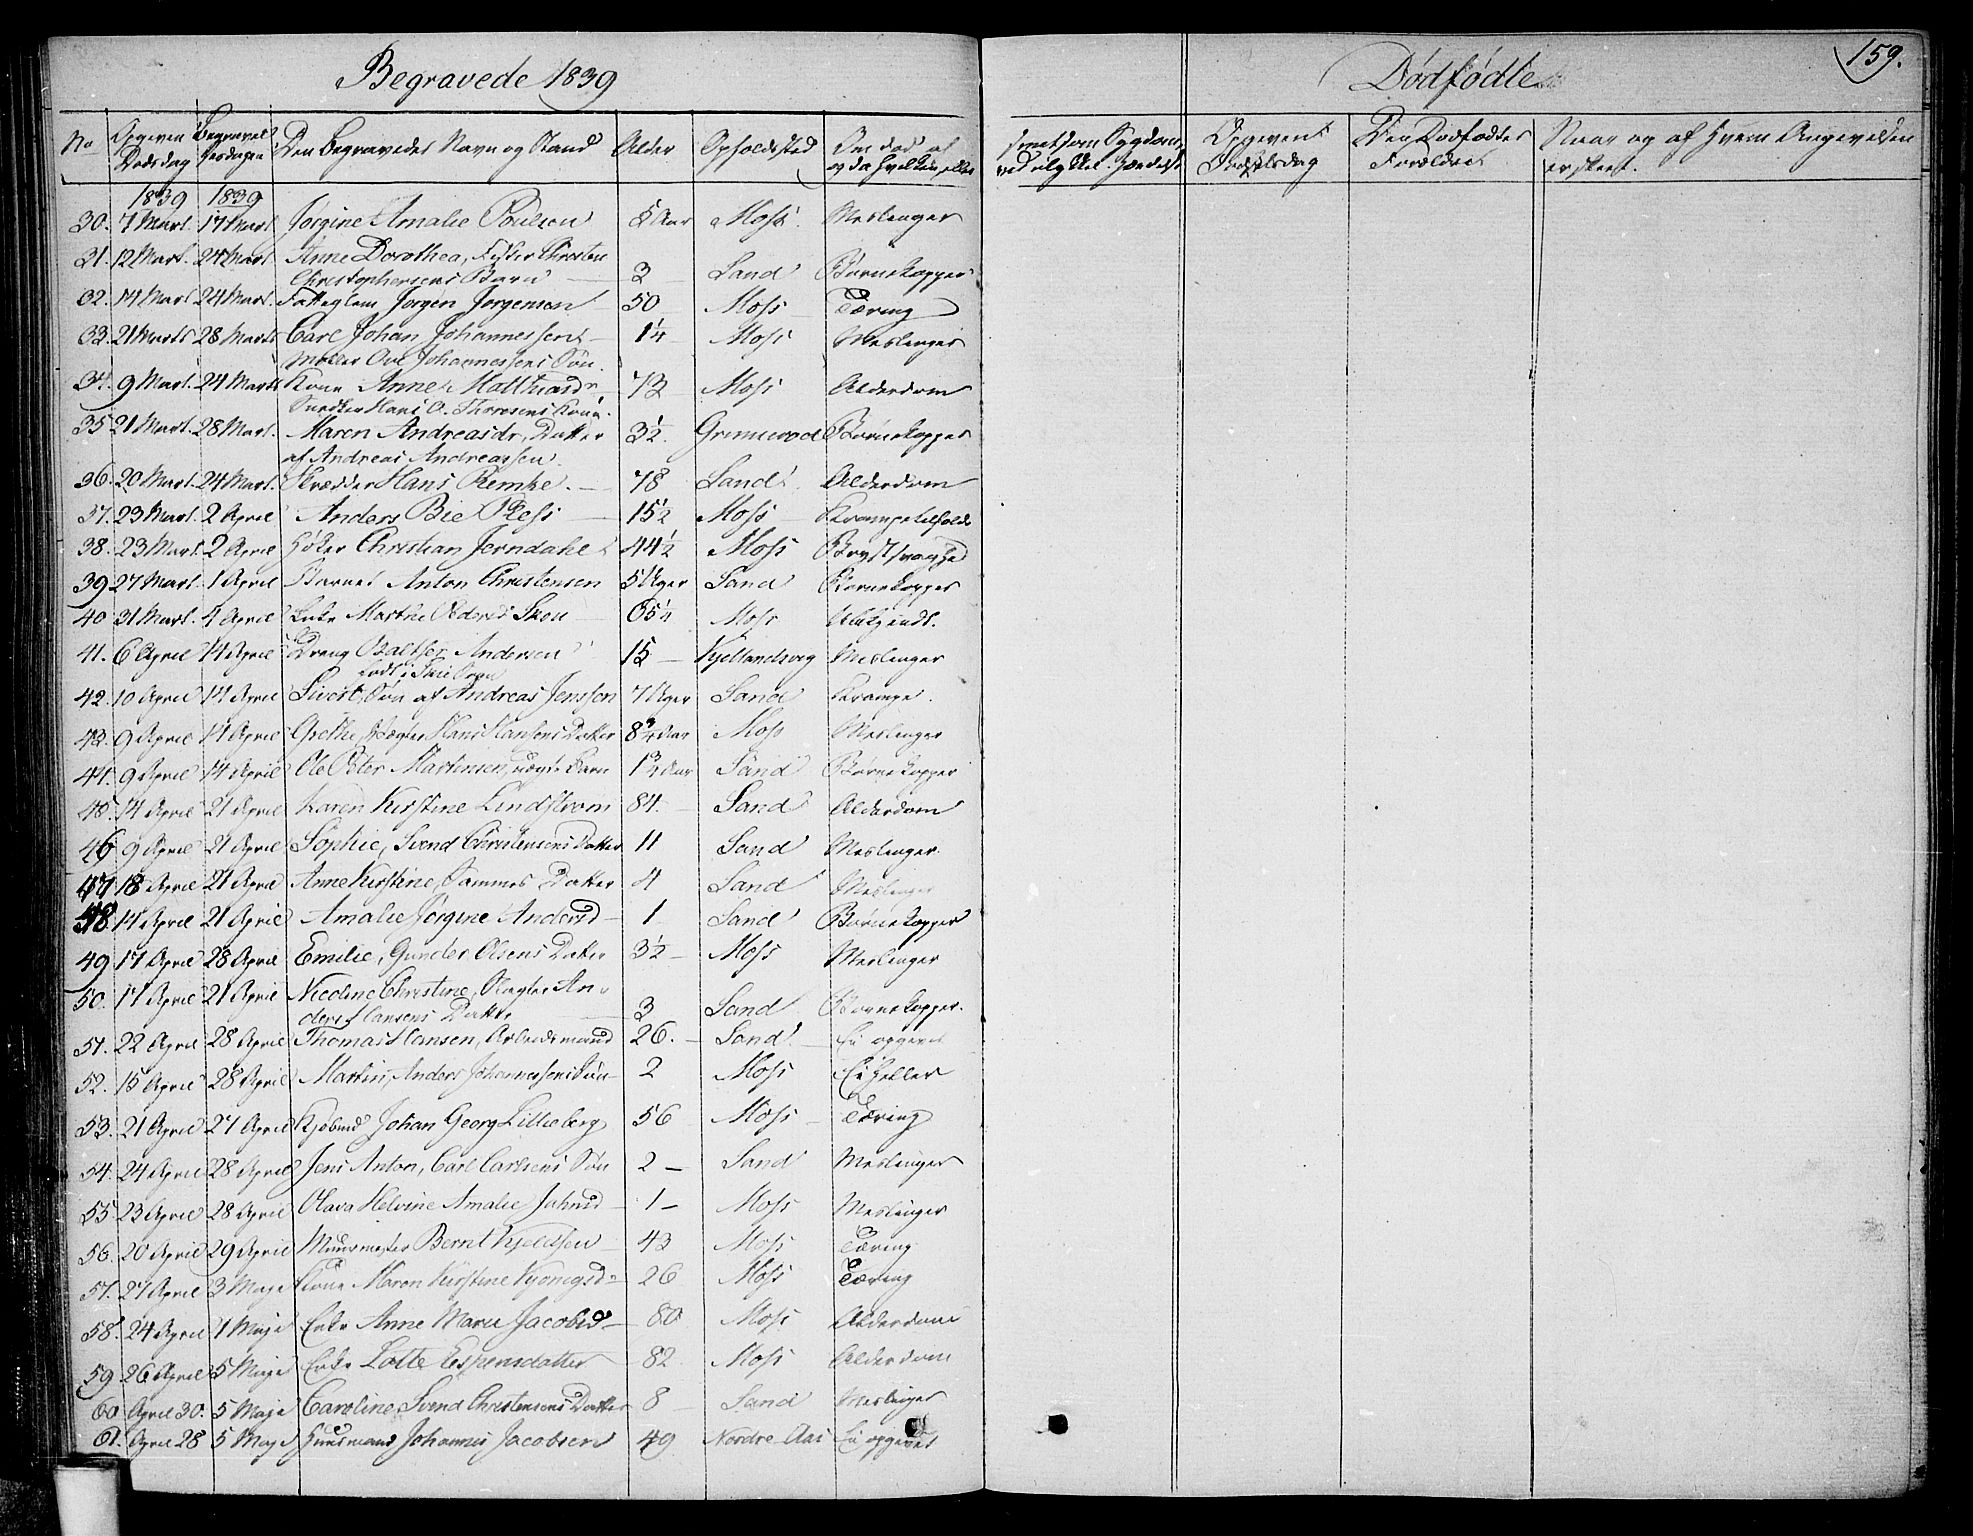 Begravede 1839
Dødfødte
159.
No
Opgiven Dødsdag
Begravelsesdagen
Den Begravedes Navn og Stand
Alder
Opholdssted
Om død af
Opgiven Fødselsdag
Den Dødfødtes Forældre
Naar og af hvem Angivelsen er skeet.
1839 1839
30. 7 Mart. 17 Mart Jørgine Amalie Poulsen 5 Aar Moss Meslinger
31. 12 Mart. 24 Mart Anne Dorothea, Fisker Christen
Christophersens Barn 3 Sand Børnekopper
32. 14 Mart 24 Mart. Fattiglem Jørgen Jørgensen 50 Moss Tæring
33. 21 Marts 28 Marts Carl Johan Johannessen 1¼ Moss Meslinger
Møller Ove Johannessens Søn.
34. 9 Mart. 24 Marts Kone Anne Matthiasdr 73 Moss Alderdom
Snedker Hans O. Thoresens Kone.
35 21 Mart. 28 Mart. Maren Andreasdr, Datter 3½. Grimsrød Børnekopper
af Andreas Andreassen.
36. 20 Mart. 24 Mart. Skrædder Hans Remke. 78 Sand Alderdom
37. 23 Mart. 2 April Anders Bie Ress 15½ Moss Krampetilfælde
38. 23 Mart. 2 April Høker Christian Jerndahl 44½ Moss Brystsvaghed
39 27 Mart. 1 April Barnet Anton Christensen 5 Uger Sand Børnekopper
40. 31 Mart. 4 April Enke Marthe Olderd Skou 65¼ Moss Ubekjendt.
41. 6 April 14 April Dreng Balthser Andersen 15 Kjellandsvig Meslinger
født i Skie Sogn
42. 10 April 14 April Sivert, Søn af Andreas Jenssen 7 Uger Sand Krampe.
43. 9 April 14 April Grethe, Hans Hansens Datter 8¾ Aar Moss Meslinger
44. 9 April 14 April Ole Peter Martinsen, uægte Barn 1¾ Aar Sand Børnekopper
45. 14 April 21 April Karen Kirstine Lindstrøm 84. Sand Alderdom
46 9 April 21 April Sophie, Svend Christensens Datter 11 Sand Meslinger.
47 18 April 21 April Anne Kirstine, Sammes Datter 4 Sand Meslinger
48. 14 April 21 April Amalie Jørgine Andersd 1 Sand Børnekopper
49 17 April 28 April Emilie, Gunder Olsens Datter 3½ Moss Meslinger
50. 17 April 21 April Nicoline Christine, Slagter An-
ders Hansens Datter 3 Sand Børnekopper.
51. 22 April 28 April Thomas Hansen, Arbeidsmand 26. Sand Ei opgivet
52. 15 April 28 April Martin, Anders Johannesens Søn 2 Moss Ei heller
53. 21 April 27 April Kjøbmd Johan Georg Lillieberg 56 Moss Tæring
54. 24 April 28 April Jens Anton, Carl Carlsens Søn 2 Sand Meslinger
55. 23 April 28 April Olava Helvine Amalie Johnsd 1 Moss Meslinger
56. 20 April 29 April Muurmester Bernt Kjeldsen 43 Moss Tæring
57. 27 April 3 Maje Kone Maren Kirstine 26 Moss Tæring
58. 24 April 1 Maje Enke Anne Marie Jacobsd 80 Moss Alderdom
59 26 April 5 Maje Enke Lotte Espensdatter 82 Moss Alderdom
60 April 30. 5 Maje Caroline, Svend Christensens Datter 8 Sand Meslinger
61. April 28 5 Maje Huusmand Johannes Jacobsen 49 Nordre Aas Ei opgivet